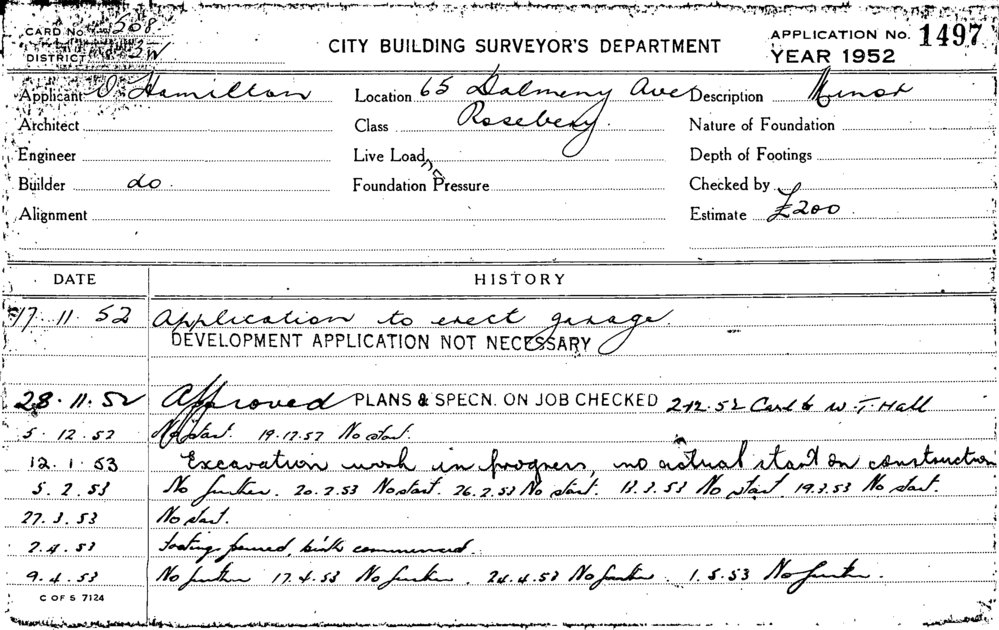 CARD No. 508.
DISTRICT 3W
CITY BUILDING SURVEYOR'S DEPARTMENT
APPLICATION No. 1497
YEAR 1952
Applicant O Hamilton Location 65 Dalmeny Ave Description Minor
Architect Class Rosebery. Nature of Foundation
Engineer Live Load Depth of Footings
Builder do. Foundation Pressure Checked by
Alignment Estimate £200
DATE HISTORY
17. 11. 52 Application to erect garage.
DEVELOPMENT APPLICATION NOT NECESSARY
28. 11. 52 Approved PLANS & SPECN. ON JOB CHECKED 2-12-52 Card to W. T. Hall
5. 12. 52 No start. 19.12.52 No start.
12. 1. 53 Excavation work in progress, no actual start on construction
5. 2. 53 No further. 20.2.53 No start. 26.2.53 No start. 13.3.53 No start. 19.3.53 No start.
27. 3. 53 No start.
2. 4. 53 Footings poured, bwk commenced.
9. 4. 53 No further 17.4.53 No further. 24.4.53 No further. 1.5.53 No further.
C OF S 7124